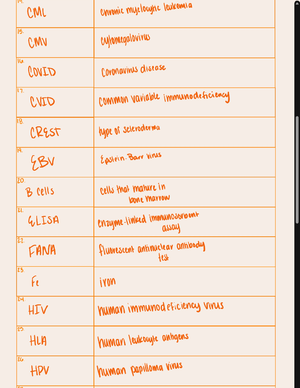 CML chronic myelocytic leukemia
15. CMV cytomegalovirus
16. COVID coronavirus disease
17. CVID common variable immunodeficiency
18. CREST type of scleroderma
19. EBV Epstein Barr virus
20. B cells cells that mature in
bone marrow
21. ELISA enzyme-linked immunosorbent
assay
22. FANA fluorescent antinuclear antibody
test
23. Fe iron
24. HIV human immunodeficiency virus
25. HLA human leukocyte antigens
26. HPV human papilloma virus